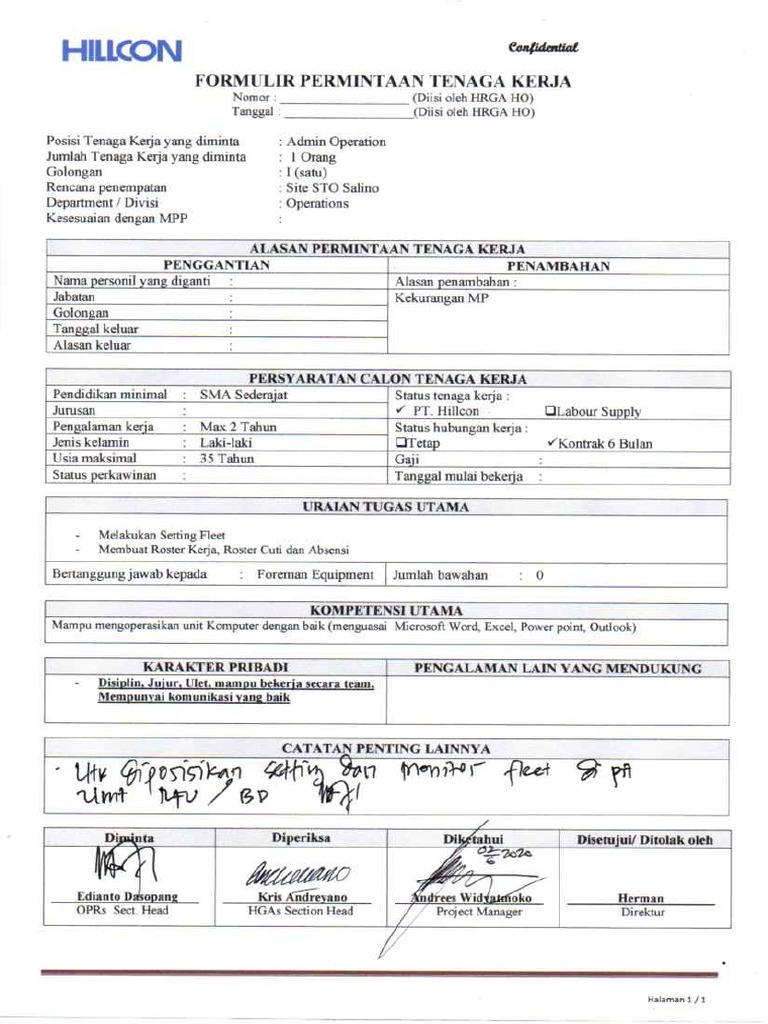 HILLCON
Confidential
FORMULIR PERMINTAAN TENAGA KERJA
Nomor : ____________________ (Diisi oleh HRGA HO)
Tanggal : ____________________(Diisi oleh HRGA HO)
Posisi Tenaga Kerja yang diminta : Admin Operation
Jumlah Tenaga Kerja yang diminta : 1 Orang
Golongan : I (satu)
Rencana penempatan : Site STO Salino
Department / Divisi : Operations
Kesesuaian dengan MPP :
ALASAN PERMINTAAN TENAGA KERJA
PENGGANTIAN PENAMBAHAN
Nama personil yang diganti : Alasan penambahan :
Jabatan : Kekurangan MP
Golongan :
Tanggal keluar :
Alasan keluar :
PERSYARATAN CALON TENAGA KERJA
Pendidikan minimal : SMA Sederajat Status tenaga kerja :
Jurusan : ✓ PT. Hillcon ❑Labour Supply
Pengalaman kerja : Max 2 Tahun Status hubungan kerja :
Jenis kelamin : Laki-laki ❑Tetap ✓Kontrak 6 Bulan
Usia maksimal : 35 Tahun Gaji :
Status perkawinan : Tanggal mulai bekerja :
URAIAN TUGAS UTAMA
- Melakukan Setting Fleet
- Membuat Roster Kerja, Roster Cuti dan Absensi
Bertanggung jawab kepada : Foreman Equipment Jumlah bawahan : 0
KOMPETENSI UTAMA
Mampu mengoperasikan unit Komputer dengan baik (menguasai Microsoft Word, Excel, Power point, Outlook)
KARAKTER PRIBADI PENGALAMAN LAIN YANG MENDUKUNG
- Disiplin, Jujur, Ulet, mampu bekerja secara team,
Mempunyai komunikasi yang baik
CATATAN PENTING LAINNYA
- Utk diposisikan setting dan monitor fleet di
Unit RFU / BD
Diminta Diperiksa Diketahui Disetujui/ Ditolak oleh
02/6 2020
Edianto Dasopang Kris Andreyano Andrees Widyatmoko Herman
OPRs Sect. Head HGAs Section Head Project Manager Direktur
Halaman 1 / 1